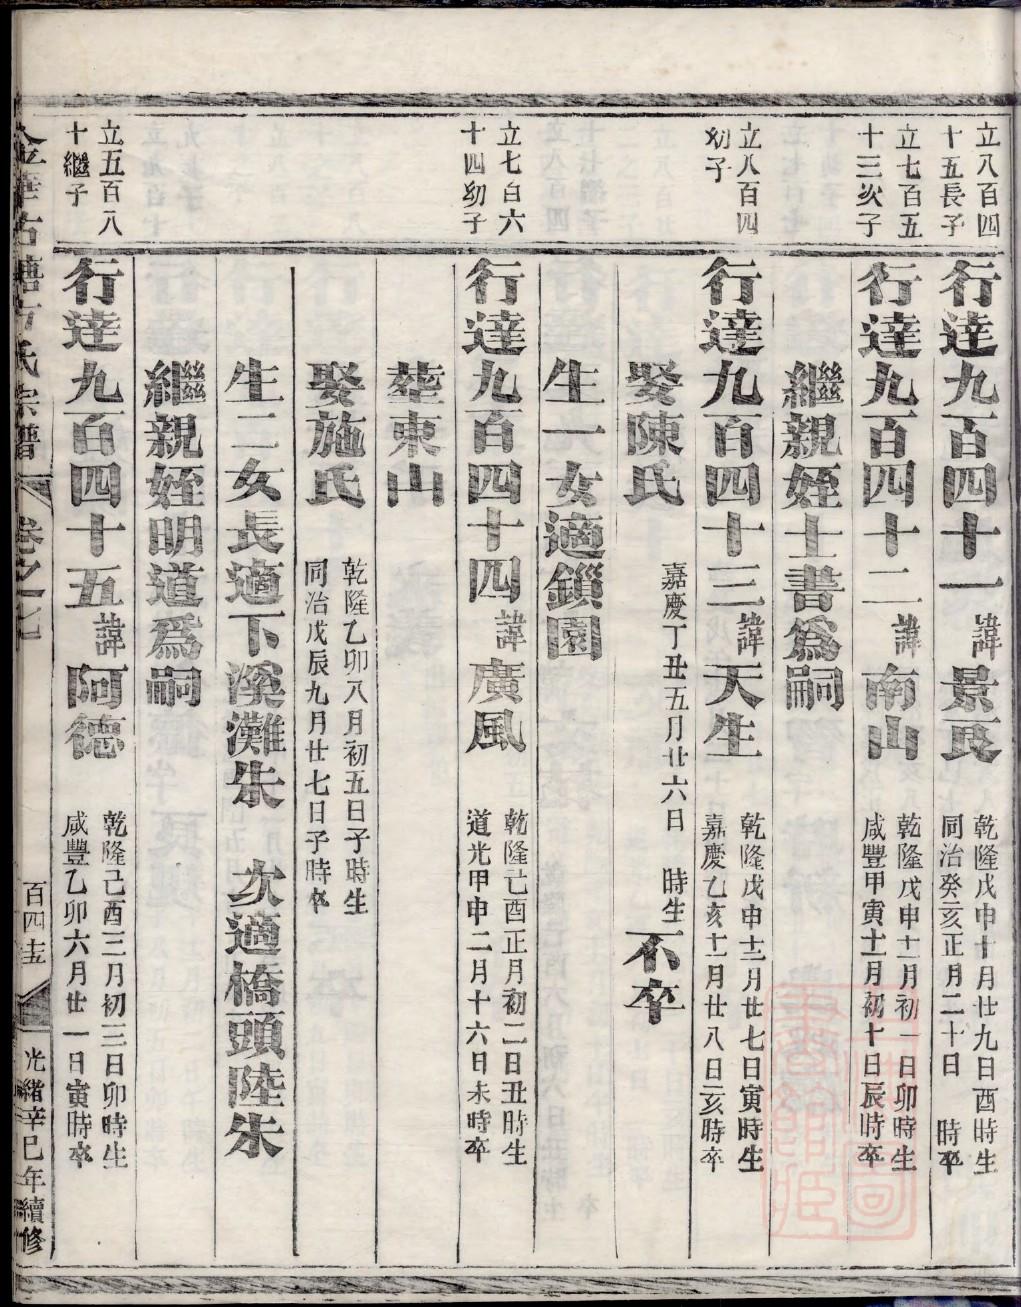 立八百四
十五長子
行達九百四十一諱景良
乾隆戊申十月廿九日酉時生
同治癸亥正月二十日 時卒
立七百五
十三次子
行達九百四十二諱南山
乾隆戊申十二月初一日卯時生
咸豐甲寅十一月初十日辰時卒
繼親姪士書爲嗣
立八百四
幼子
行達九百四十三諱天生
乾隆戊申十二月廿七日寅時生
嘉慶乙亥十一月廿八日亥時卒
娶陳氏
嘉慶丁丑五月廿六日 時生
不卒
生一女適鎖園
立七百六
十四幼子
行達九百四十四諱廣風
乾隆己酉正月初二日丑時生
道光甲申二月十六日未時卒
葬東山
娶施氏
乾隆乙卯八月初五日子時生
同治戊辰九月廿七日子時卒
生二女長適下溪灘朱 次適橋頭陸朱
繼親姪明道爲嗣
立五百八
十繼子
行達九百四十五諱阿德
乾隆己酉三月初三日卯時生
咸豐乙卯六月廿一日寅時卒
氏宗譜 卷之七 百四十五 光緒辛巳年續修